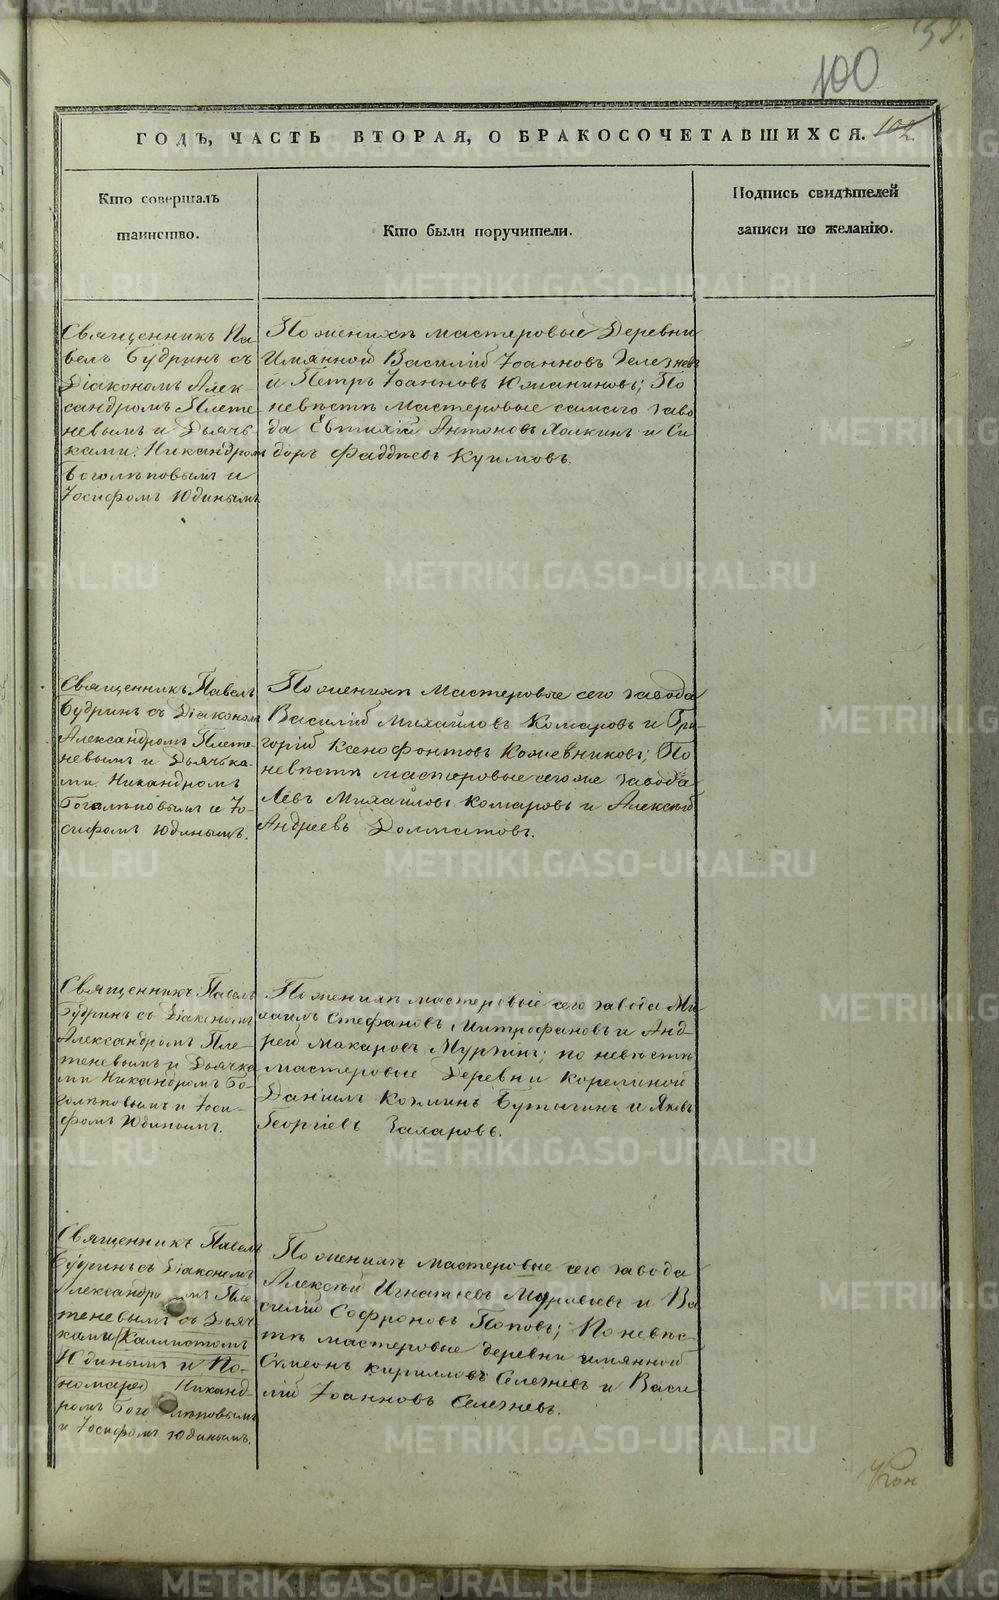 100
102
ГОДЪ, ЧАСТЬ ВТОРАЯ, О БРАКОСОЧЕТАВШИХСЯ.
Кто совершалъ
таинство.
Кто были поручители.
Подпись свидѣтелей
записи по желанію.
Священникъ Па
велъ Будринъ съ
Діакономъ Алек
сандромъ Плете
невымъ и Дьячь
ками: Никандромъ
Боголѣповымъ и
Іосифомъ Юдинымъ
По женихѣ мастеровые Деревни
Имянной Василій Іоанновъ Селезневъ
и Петръ Іоанновъ Южаниновъ; По
невѣстѣ мастеровые самаго заво
да Евтихій Антоновъ Холкинъ и Си
доръ Фаддѣевъ Куимовъ.
Священникъ Павелъ
Будринъ съ Діакономъ
Александромъ Плете
невымъ и Дьячька
ми Никандромъ
Боголѣповымъ и Іо-
сифомъ Юдинымъ.
По женихѣ Мастеровые сего завода
Василій Михайловъ Комаровъ и Гри-
горій Ксенофонтовъ Кожевниковъ; По
невѣстѣ мастеровые сегоже завода
Левъ Михайловъ Комаровъ и Алексѣй
Андреевъ Долматовъ.
Священникъ Павелъ
Будринъ съ Діакономъ
Александромъ Пле-
теневымъ и Дьячка
ми Никандромъ Бо-
голѣповымъ и Іоси-
фомъ Юдинымъ.
По женихѣ мастеровые сего завода Ми
хаилъ Стефановъ Митрофановъ и Анд-
рей Макаровъ Мурзинъ; по невѣстѣ
мастеровые Деревни Корелиной
Даніилъ Козминъ Бутыгинъ и Яковъ
Георгіевъ Захаровъ.
Священникъ Павелъ
Будринъ съ Діакономъ
Александромъ Пле
теневымъ съ Дьяч
ками Каллистомъ
Юдинымъ и По-
номаремъ Никанд-
ромъ Боголѣповымъ
и Іосифомъ Юдинымъ.
По женихѣ мастеровые сего завода
Алексѣй Игнатьевъ Муравьевъ и Ва
силій Софроновъ Поповъ; По невѣс-
тѣ мастеровые деревни имянной
Сѵмеонъ Кирилловъ Селезневъ и Васи
лій Іоанновъ Селезневъ.
METRIKI.GASO-URAL.RU